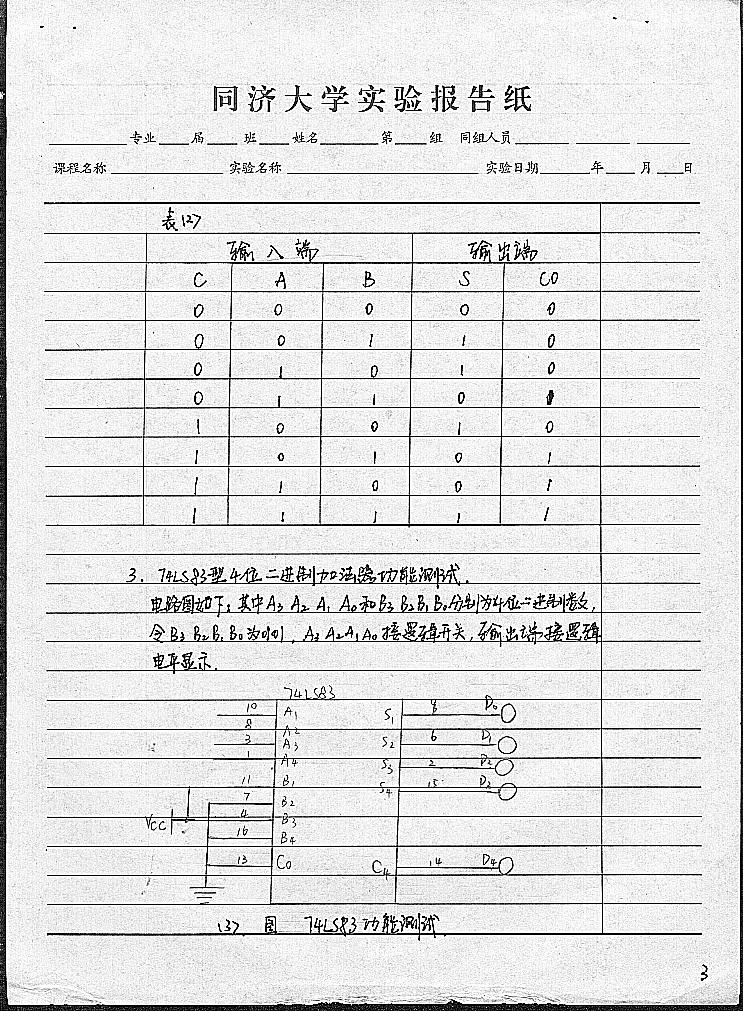 同济大学实验报告纸
专业 届 班 姓名 第 组 同组人员
课程名称 实验名称 实验日期 年 月 日
表(2)
输入端 输出端
C A B S CO
0 0 0 0 0
0 0 1 1 0
0 1 0 1 0
0 1 1 0 1
1 0 0 1 0
1 0 1 0 1
1 1 0 0 1
1 1 1 1 1
3. 74LS83型4位二进制加法器功能测试.
电路图如下: 其中A3 A2 A1 A0和B3 B2 B1 B0分别为4位二进制数,
令B3 B2 B1 B0为0101, A3 A2 A1 A0接逻辑开关, 输出端接逻辑
电平显示.
74LS83
10 A1 S1 9 D0
8 A2
3 A3 S2 6 D1
1 A4 S3 2 D2
11 B1 S4 15 D3
7 B2
Vcc 4 B3
16 B4
13 C0 C4 14 D4
(3) 图 74LS83功能测试
3